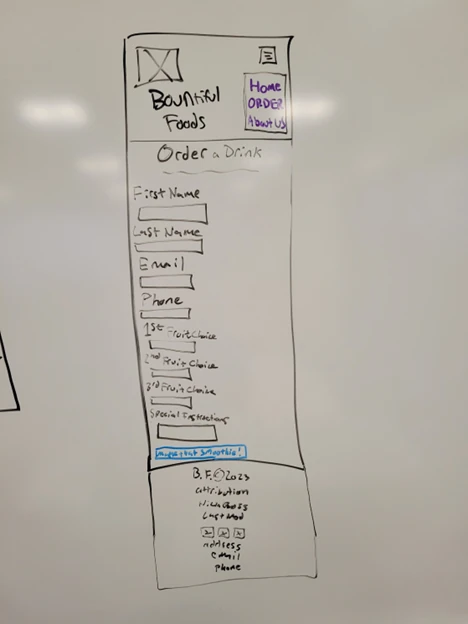 Bountiful
Foods
Home
ORDER
About Us
Order a Drink
First Name
Last Name
Email
Phone
1st Fruit Choice
2nd Fruit Choice
3rd Fruit Choice
Special Instructions
Smoothie!
B.F.©2023
attribution
Last Mod
address
email
Phone